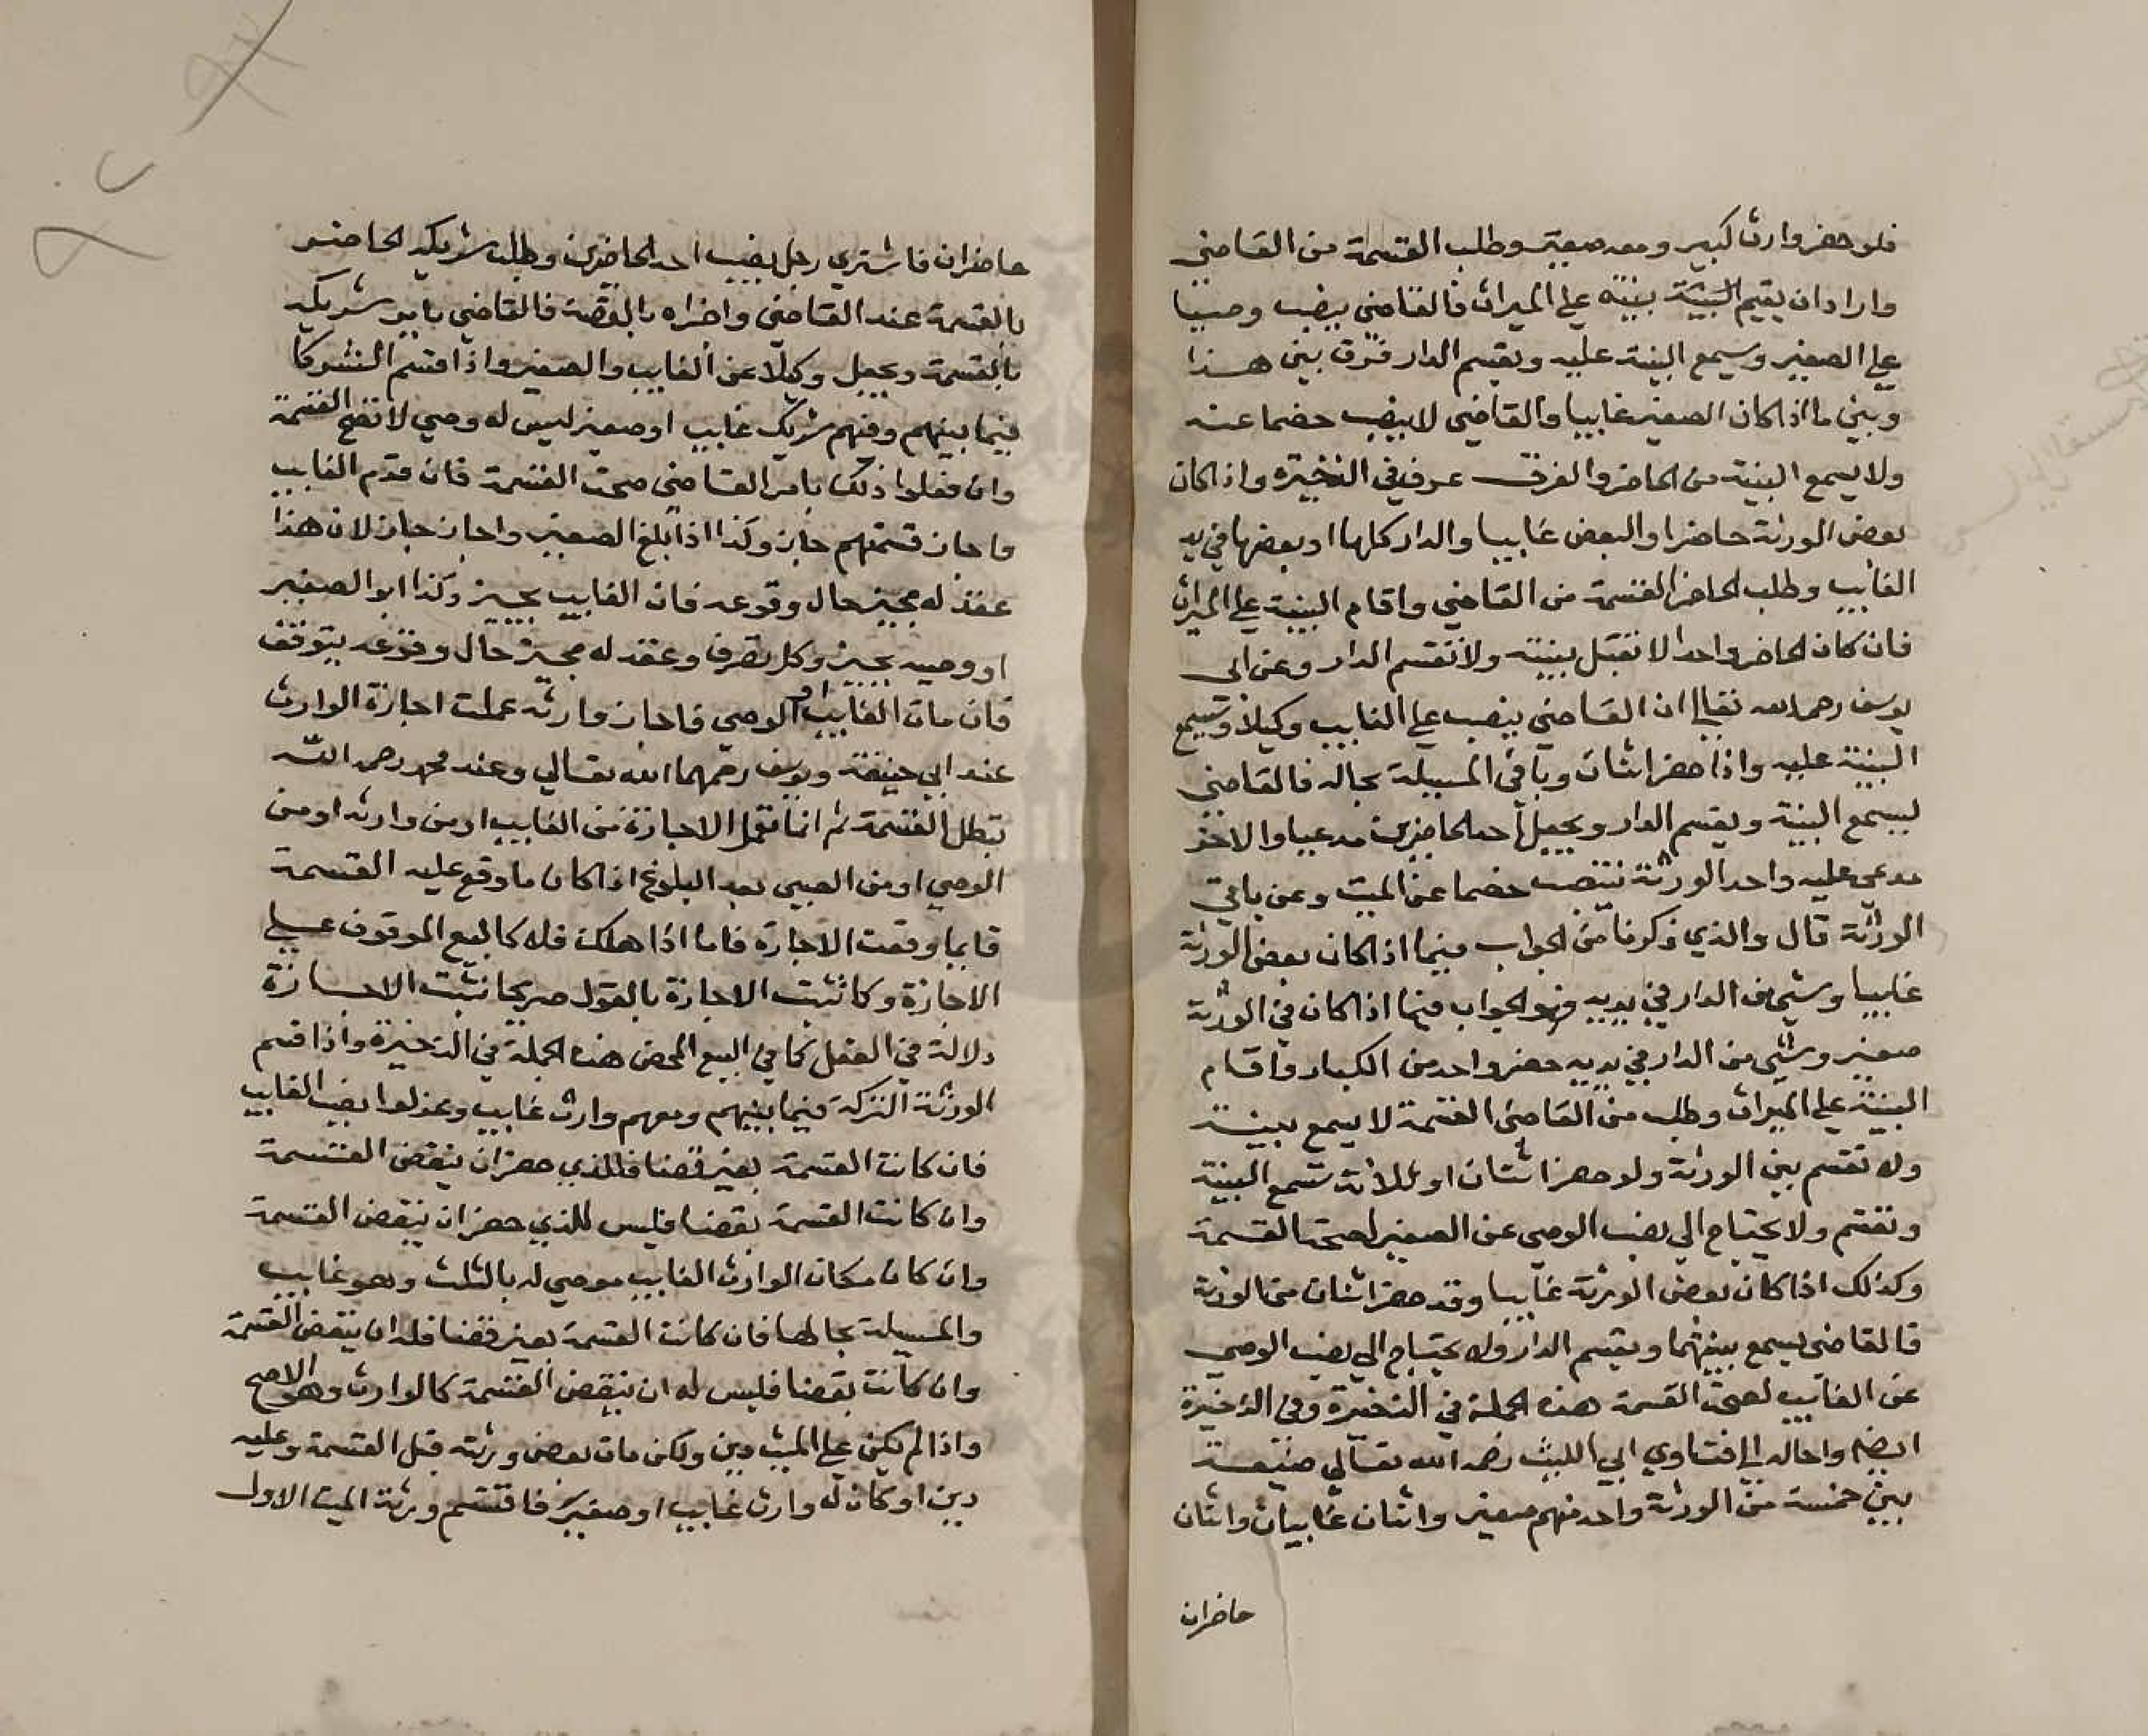 فلو حضر وارث كبير ومعه صغير وطلب القسمة من القاضي
واراد ان يقيم البينة بينته علي الميراث فالقاضي ينصب وصيا
علي الصغير ويسمع البينة عليه ويقسم الدار فرق بين هذا
وبين ما اذا كان الصغير غايبا والقاضي لا ينصب خصما عنه
ولا يسمع البينة من الحاضر والفرق عرف في الذخيرة واذا كان
بعض الورثة حاضرا والبعض غايبا والدار كلها او بعضها في يد
الغايب وطلب الحاضر القسمة من القاضي واقام البينة علي الميراث
فان كان الحاضر واحدا لا تقبل بينته ولا تقسم الدار وعن ابي
يوسف رحمه الله تعالى ان القاضي ينصب علي الغايب وكيلا ويسمع
البينة عليه واذا حضر اثنان وباقي المسيلة بحاله فالقاضي
يسمع البينة ويقسم الدار ويجعل احد الحاضرين مدعيا والاخر
مدعي عليه واحد الورثة ينتصب خصما عن الميت وعن باقي
الورثة قال والذي ذكرنا من الجواب فيما اذا كان بعض الورثة
غايبا وشي من الدار في يديه فهو الجواب فيما اذا كان في الورثة
صغير وشي من الدار في يديه حضر واحد من الكبار واقام
البينة علي الميراث وطلب من القاضي القسمة لا يسمع بينته
ولا تقسم بين الورثة ولو حضر اثنان او ثلاثة تسمع البينة
وتقسم ولا يحتاج الي نصب الوصي عن الصغير لصحة القسمة
وكذلك اذا كان بعض الورثة غايبا وقد حضر اثنان من الورثة
فالقاضي يسمع بينتهما ويقسم الدار ولا يحتاج الي نصب الوصي
عن الغايب لصحة القسمة هذه الجملة في الذخيرة وفي الذخيرة
ايضا واحاله الي فتاوي ابي الليث رحمه الله تعالي ضيعة
بين خمسة من الورثة واحد منهم صغير واثنان غايبان واثنان
حاضران
حاضران فاشتري رجل نصيب احد الحاضرين وطلب شريكه الحاضر
بالقسمة عند القاضي واخبراه بالقصة فالقاضي يامر شريكه
بالقسمة ويجعل وكيلا عن الغايب والصغير واذا قسم الشركا
فيما بينهم وفيهم شريك غايب او صغير ليس له وصي لا تصح القسمة
وان فعلوا ذلك بامر القاضي صحت القسمة فان قدم الغايب
فاجاز قسمتهم جاز وكذا اذا بلغ الصغير واجاز جاز لان هذا
عقد له مجيز حال وقوعه فان الغايب يجيز وكذا ابو الصغير
او وصيه يجيز وكل تصرف وعقد له مجيز حال وقوعه يتوقف
فان مات الغايب او الوصي فاجاز وارثه عملت اجازة الوارث
عند ابي حنيفة ويوسف رحمهما الله تعالي وعند محمد رحمه الله
تبطل القسمة ثم انما تعمل الاجازة من الغايب او من وارثه او من
الوصي او من الصبي بعد البلوغ اذا كان ما وقع عليه القسمة
قايما وقعت الاجازة فاما اذا هلك فلا كالبيع الموقوف علي
الاجازة وكما تثبت الاجازة بالقول صريحا تثبت الاجازة
دلالة في الفعل كما في البيع المحض هذه الجملة في الذخيرة واذا قسم
الورثة التركة فيما بينهم ومعهم وارث غايب وعزلوا نصيب الغايب
فان كانت القسمة بغير قضا فللذي حضر ان ينقض القسمة
وان كانت القسمة بقضا فليس للذي حضر ان ينقض القسمة
وان كان مكان الوارث الغايب موصي له بالثلث وهو غايب
والمسيلة بحالها فان كانت القسمة بغير قضا فله ان ينقض القسمة
وان كانت بقضا فليس له ان ينقض القسمة كالوارث وهو الاصح
واذا لم يكن علي الميت دين ولكن مات بعض ورثته قبل القسمة وعليه
دين او كان له وارث غايب او صغير فاقتسم ورثة الميت الاول